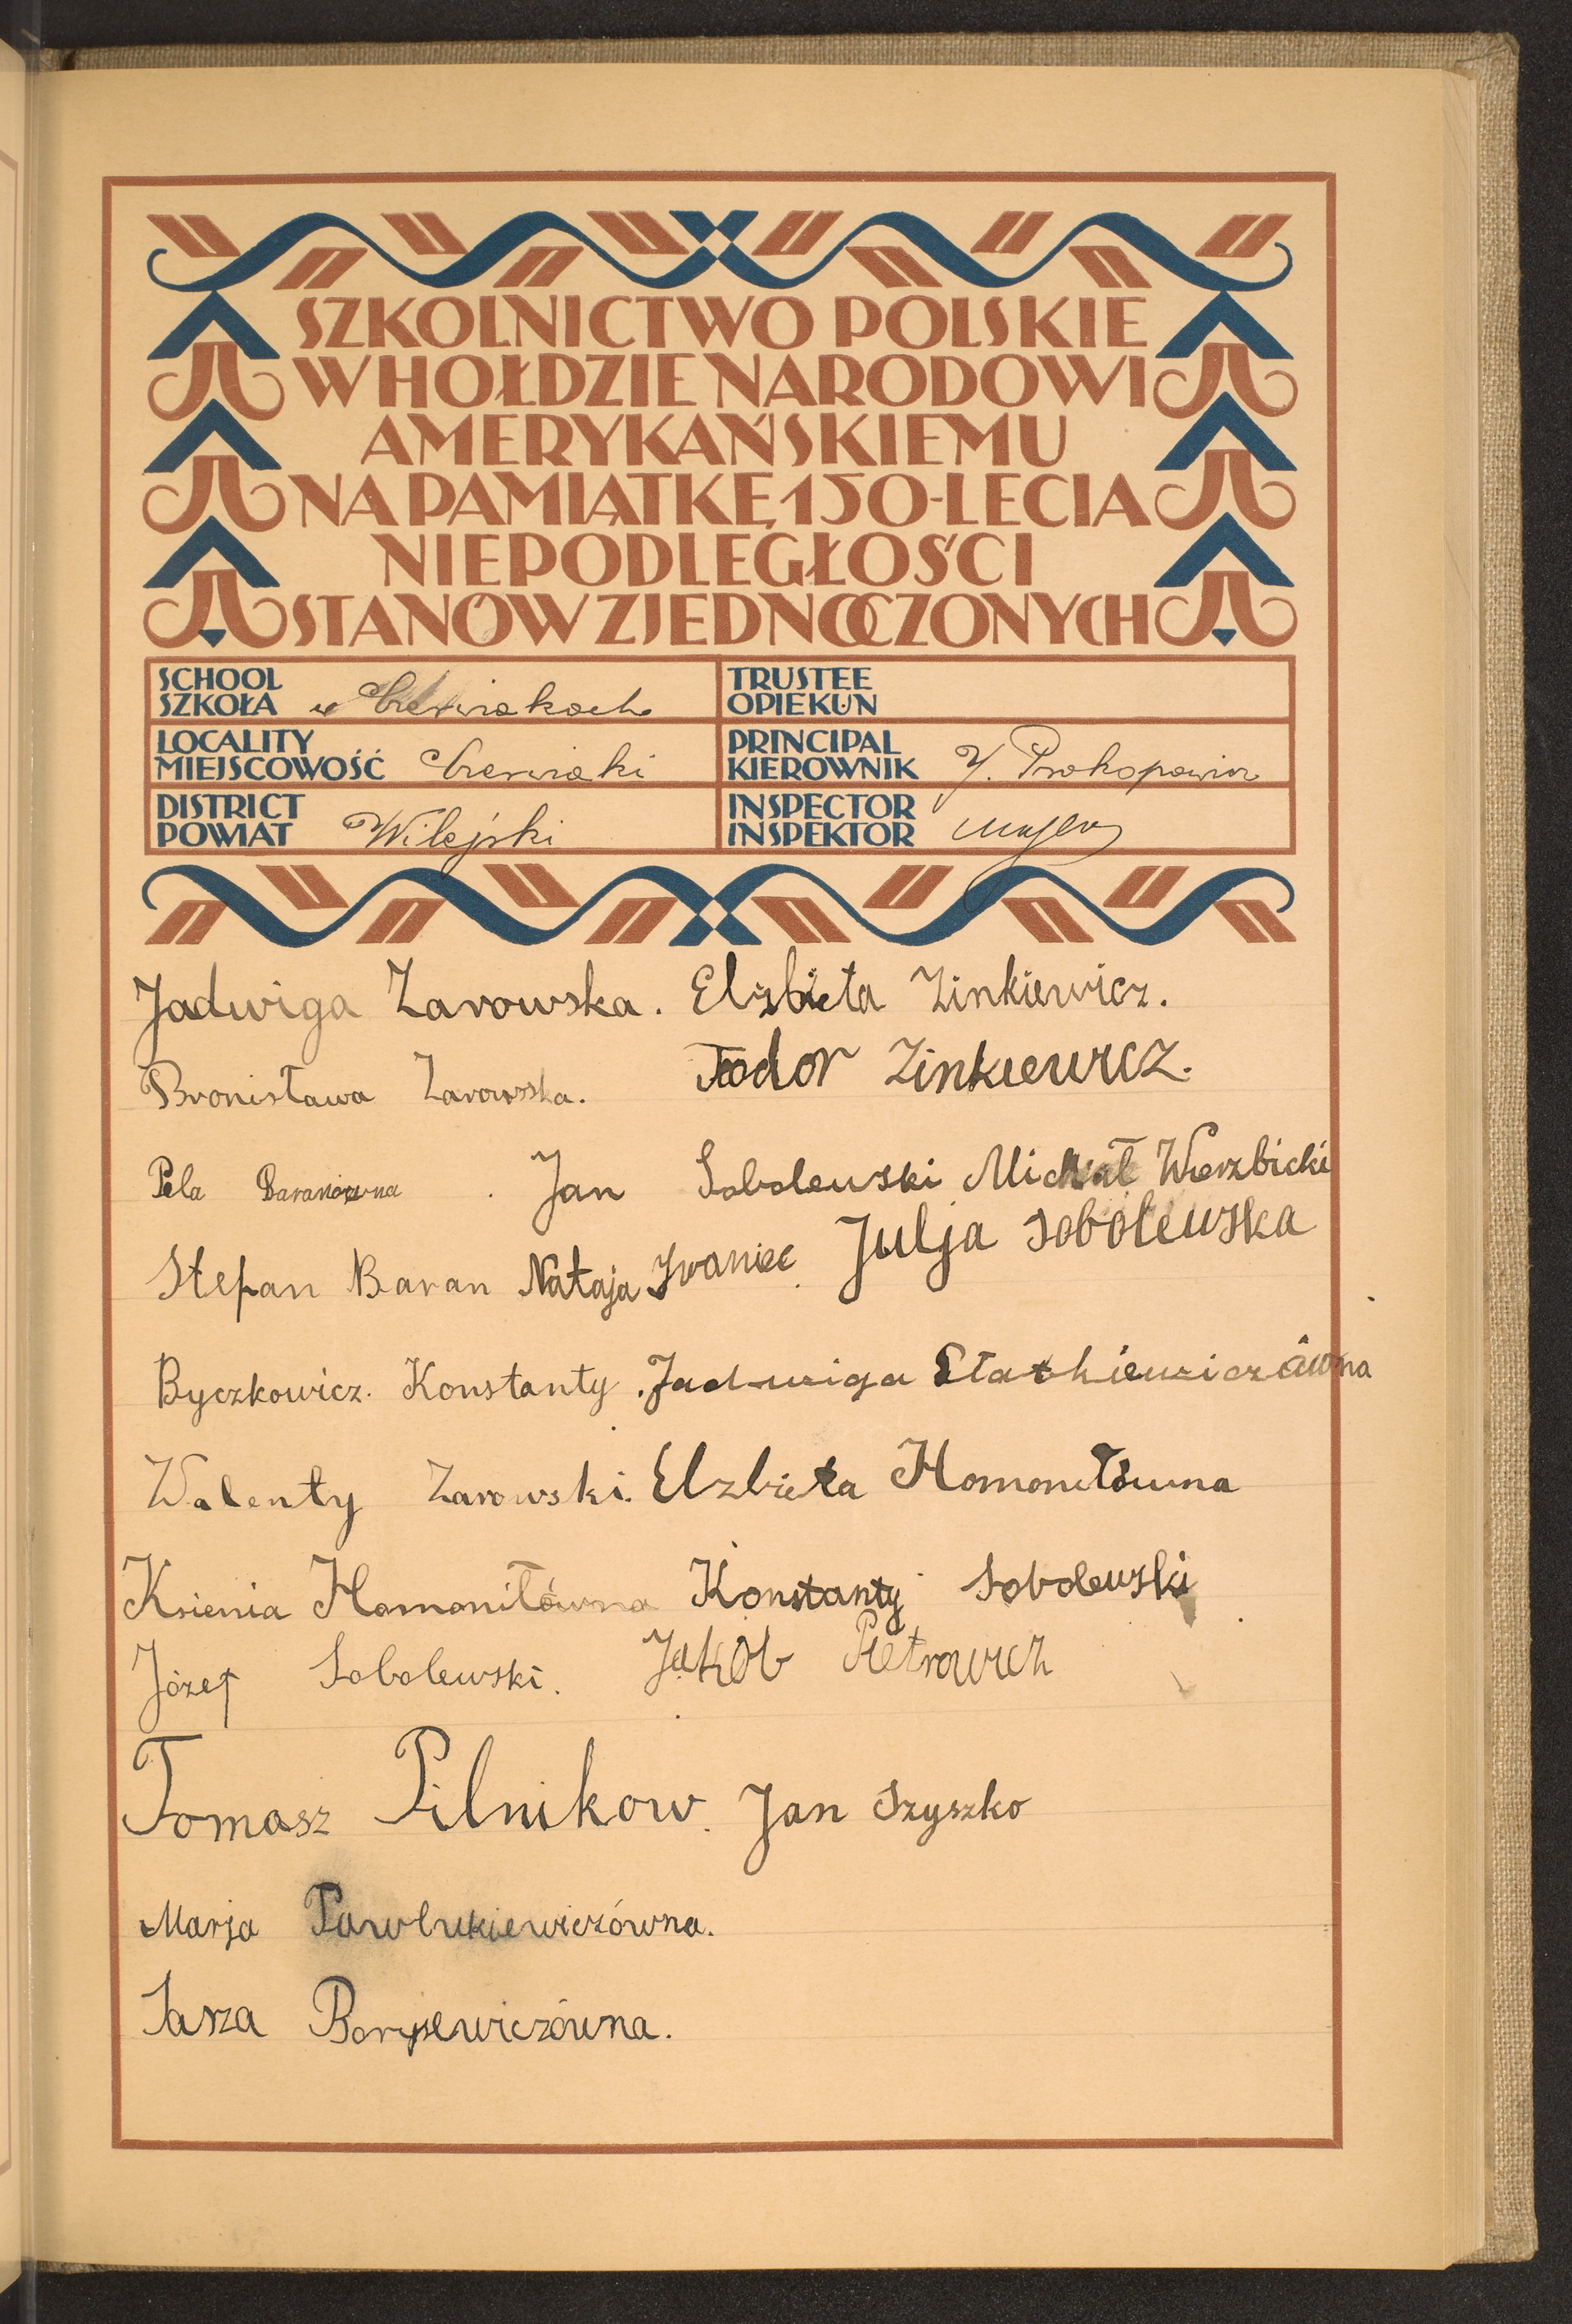 SZKOLNICTWO POLSKIE
W HOŁDZIE NARODOWI
AMERYKAŃSKIEMU
NA PAMIĄTKĘ 150-LECIA
NIEPODLEGŁOŚCI
STANÓW ZJEDNOCZONYCH
SCHOOL
SZKOŁA w
TRUSTEE
OPIEKUN
LOCALITY
MIEJSCOWOŚĆ
PRINCIPAL
KIEROWNIK J. Prokopowicz
DISTRICT
POWIAT Wilejski
INSPECTOR
INSPEKTOR
Jadwiga Zarowska. Elzbieta Zinkiewicz.
Bronisława Zarowska. Teodor Zinkiewicz.
Pela Baranówna Jan Sobolewski Michał Wierzbicki
Stefan Baran Nataja Iwaniec Julja Sobolewska
Byczkowicz. Konstanty. Jadwiga Statkiewiczówna
Walenty Zarowski. Elzbieta Homoniłówna
Ksienia Homoniłówna Konstanty Sobolewski
Józef Sobolewski. Jakób Pietrowicz
Tomasz Pilnikow. Jan Szyszko
Marja Pawlukiewiczówna.
Sasza Borysewiczówna.